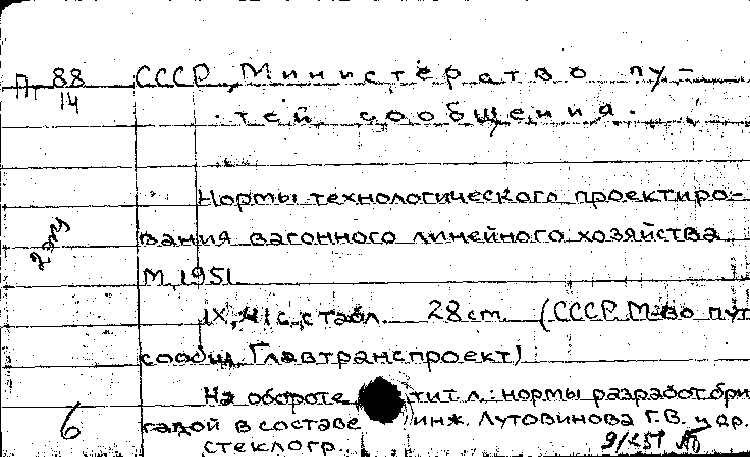 П 88/14 СССР, Министерство пу-
тей сообщения.
Нормы технологического проектиро-
2 экз
вания вагонного линейного хозяйства
М, 1951.
IX, 41с., с табл. 28 cm. (СССР. М-во пут
сообщ. Главтранспроект)
На обороте тит. л.: нормы разработ. бри
6 гадой в составе инж. Лутовинова Г.В. и др.
стеклогр.